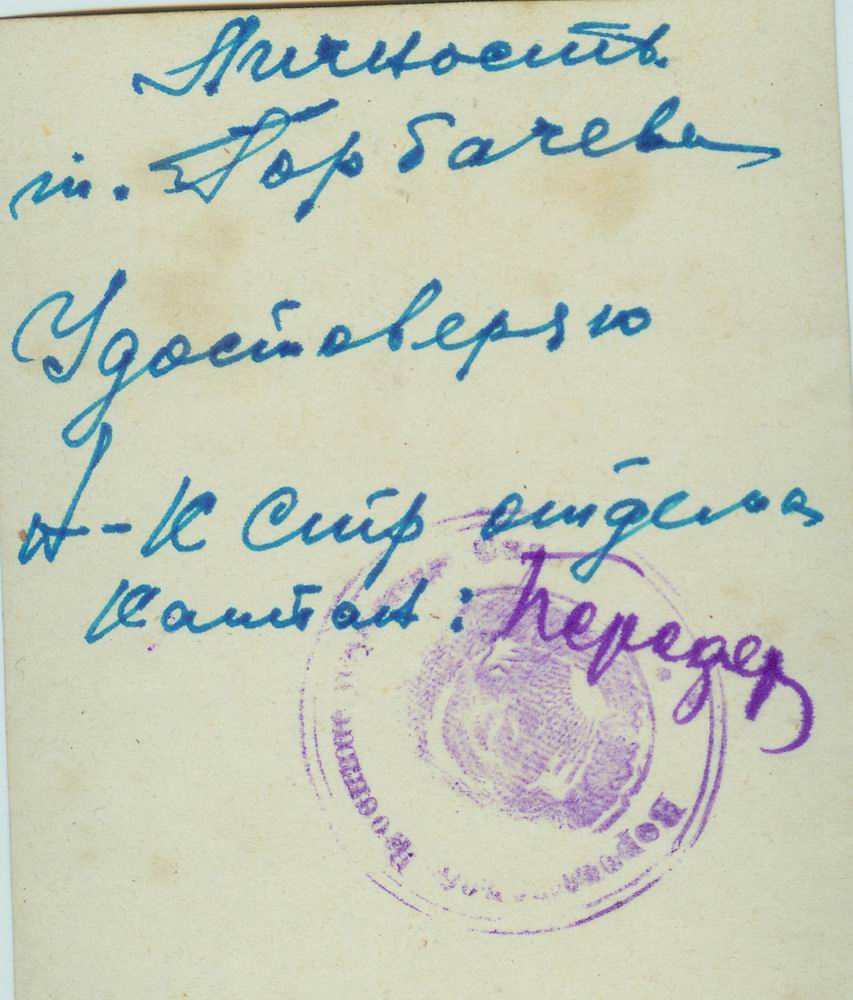 Личность
т. Горбачева
Удостоверяю
Н-к Стр отдела
Капитан: